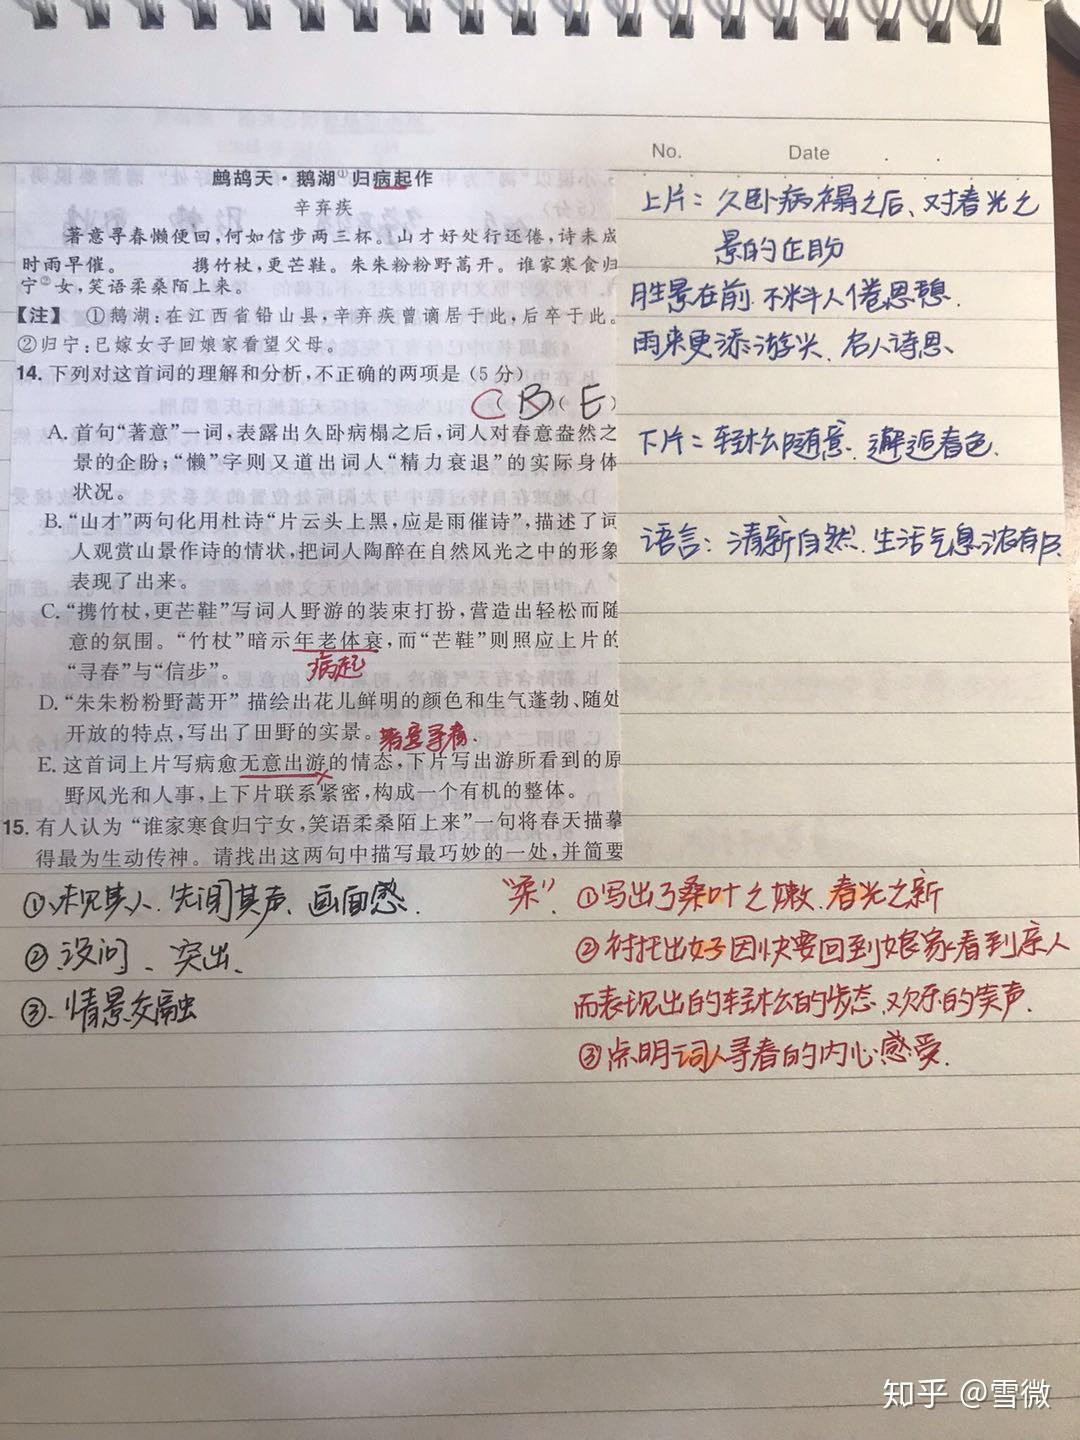 No. Date
鹧鸪天·鹅湖①归病起作
辛弃疾
著意寻春懒便回，何如信步两三杯。山才好处行还倦，诗未成
时雨早催。 携竹杖，更芒鞋。朱朱粉粉野蒿开。谁家寒食归
宁②女，笑语柔桑陌上来。
【注】 ①鹅湖：在江西省铅山县，辛弃疾曾谪居于此，后卒于此。
②归宁：已嫁女子回娘家看望父母。
14. 下列对这首词的理解和分析，不正确的两项是（5分）
C( B )( E )
A. 首句“著意”一词，表露出久卧病榻之后，词人对春意盎然之
景的企盼；“懒”字则又道出词人“精力衰退”的实际身体
状况。
B. “山才”两句化用杜诗“片云头上黑，应是雨催诗”，描述了词
人观赏山景作诗的情状，把词人陶醉在自然风光之中的形象
表现了出来。
C. “携竹杖，更芒鞋”写词人野游的装束打扮，营造出轻松而随
意的氛围。“竹杖”暗示年老体衰，而“芒鞋”则照应上片的
“寻春”与“信步”。
病起
D. “朱朱粉粉野蒿开”描绘出花儿鲜明的颜色和生气蓬勃、随处
开放的特点，写出了田野的实景。
著意寻春.
E. 这首词上片写病愈无意出游的情态，下片写出游所看到的原
野风光和人事，上下片联系紧密，构成一个有机的整体。
15. 有人认为“谁家寒食归宁女，笑语柔桑陌上来”一句将春天描摹
得最为生动传神。请找出这两句中描写最巧妙的一处，并简要
上片：久卧病榻之后、对春光之
景的企盼
胜景在前、不料人倦思憩.
雨来更添游兴、名人诗思
下片：轻松随意、邂逅春色.
语言：清新自然、生活气息浓有P.
①、未见其人、先闻其声、画面感.
②、设问、突出、
③、情景交融
“柔”. ①写出了桑叶之嫩、春光之新
②衬托出女子因快要回到娘家看到亲人
而表现出的轻松的步态、欢乐的笑声.
③点明词人寻春的内心感受.
知乎 @雪微